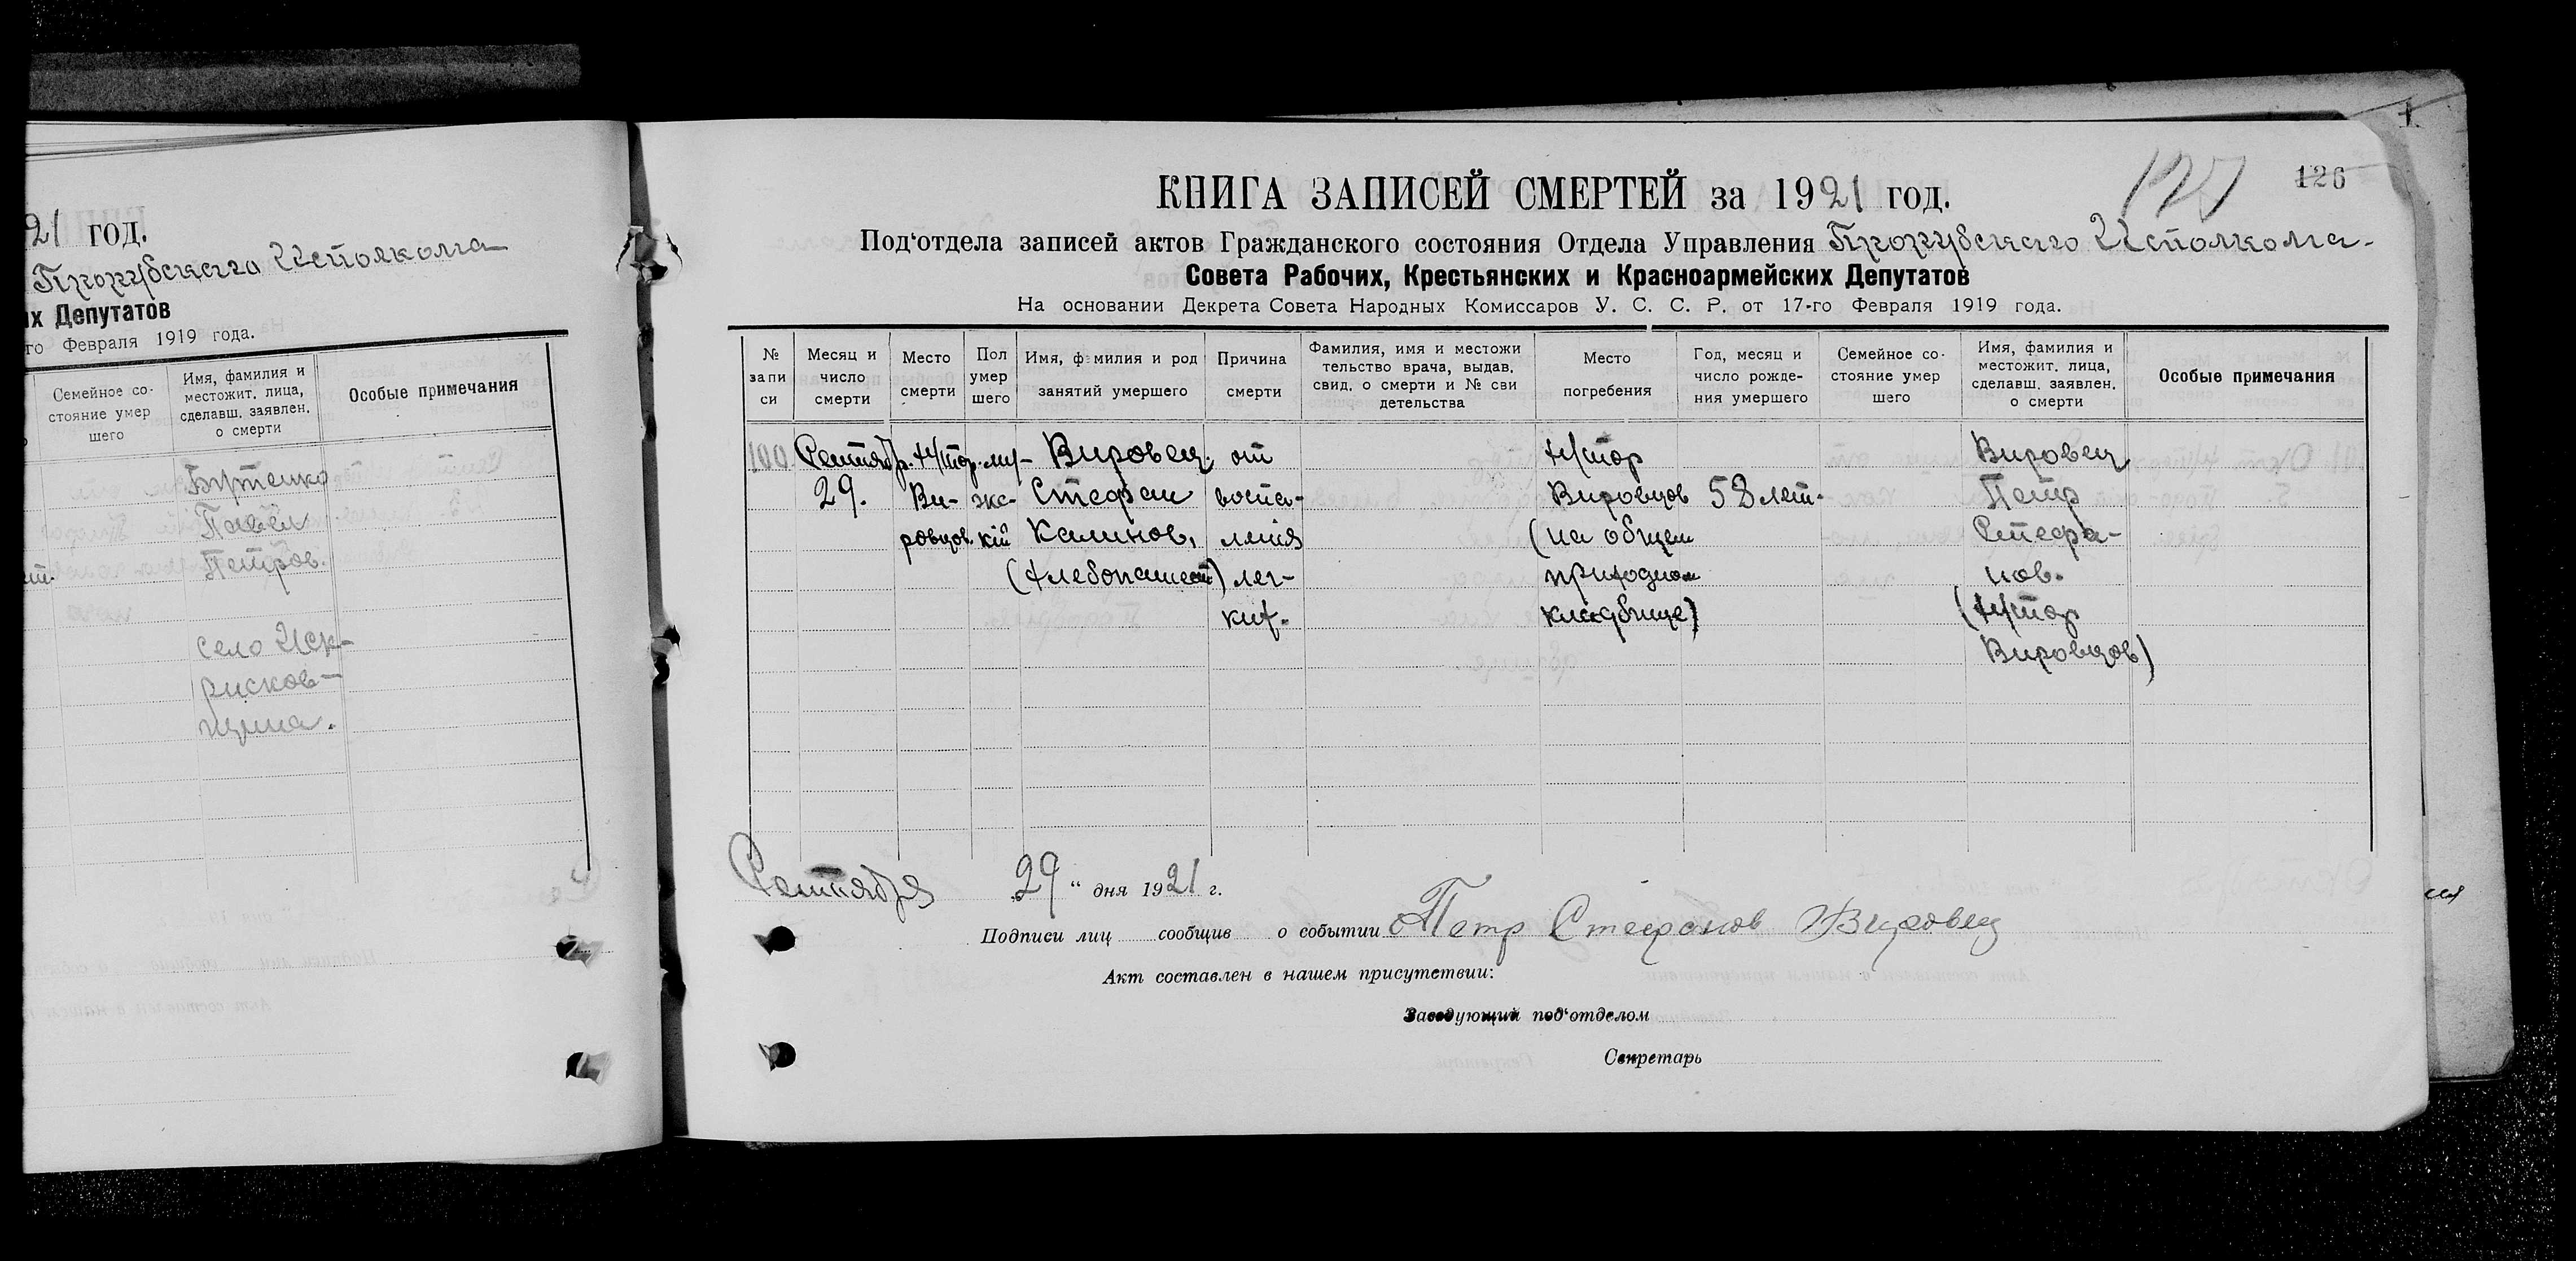 21 год.
Прорубскаго Исполкома
их Депутатов
го Февраля 1919 года.
Семейное со-
стояние умер
шего
Имя, фамилия и
местожит. лица,
сделавш. заявлен.
о смерти
Особые примечания
Бутенко
Павел
Петров.
ет.
село Иск-
рисков-
щина.
126
127
КНИГА ЗАПИСЕЙ СМЕРТЕЙ за 1921 год.
Под'отдела записей актов Гражданского состояния Отдела Управления Прорубскаго Исполкома-
Совета Рабочих, Крестьянских и Красноармейских Депутатов
На основании Декрета Совета Народных Комиссаров У. С. С. Р. от 17-го Февраля 1919 года.
№
запи
си
Месяц и
число
смерти
Место
смерти
Пол
умер
шего
Имя, фамилия и род
занятий умершего
Причина
смерти
Фамилия, имя и местожи
тельство врача, выдав.
свид. о смерти и № сви
детельства
Место
погребения
Год, месяц и
число рожде-
ния умершего
Семейное со-
стояние умер
шего
Имя, фамилия и
местожит. лица,
сделавш. заявлен.
о смерти
Особые примечания
100.
Сентябр.
29.
Хутор.
Ви-
ровцов.
му-
жс-
кій
Вировец
Стефан
Калинов,
(хлебопашест)
от
воспа-
ления
лег-
ких.
Хутор
Вировцов
(на общем
приходном
кладбище)
58 лет.
Вировец
Петр
Стефа-
нов.
(Хутор
Вировцов)
Сентября 29 " дня 1921 г.
Подписи лиц сообщив о событии Петр Стефанов Вировец
Акт составлен в нашем присутствии:
Заведующий под'отделом
Секретарь